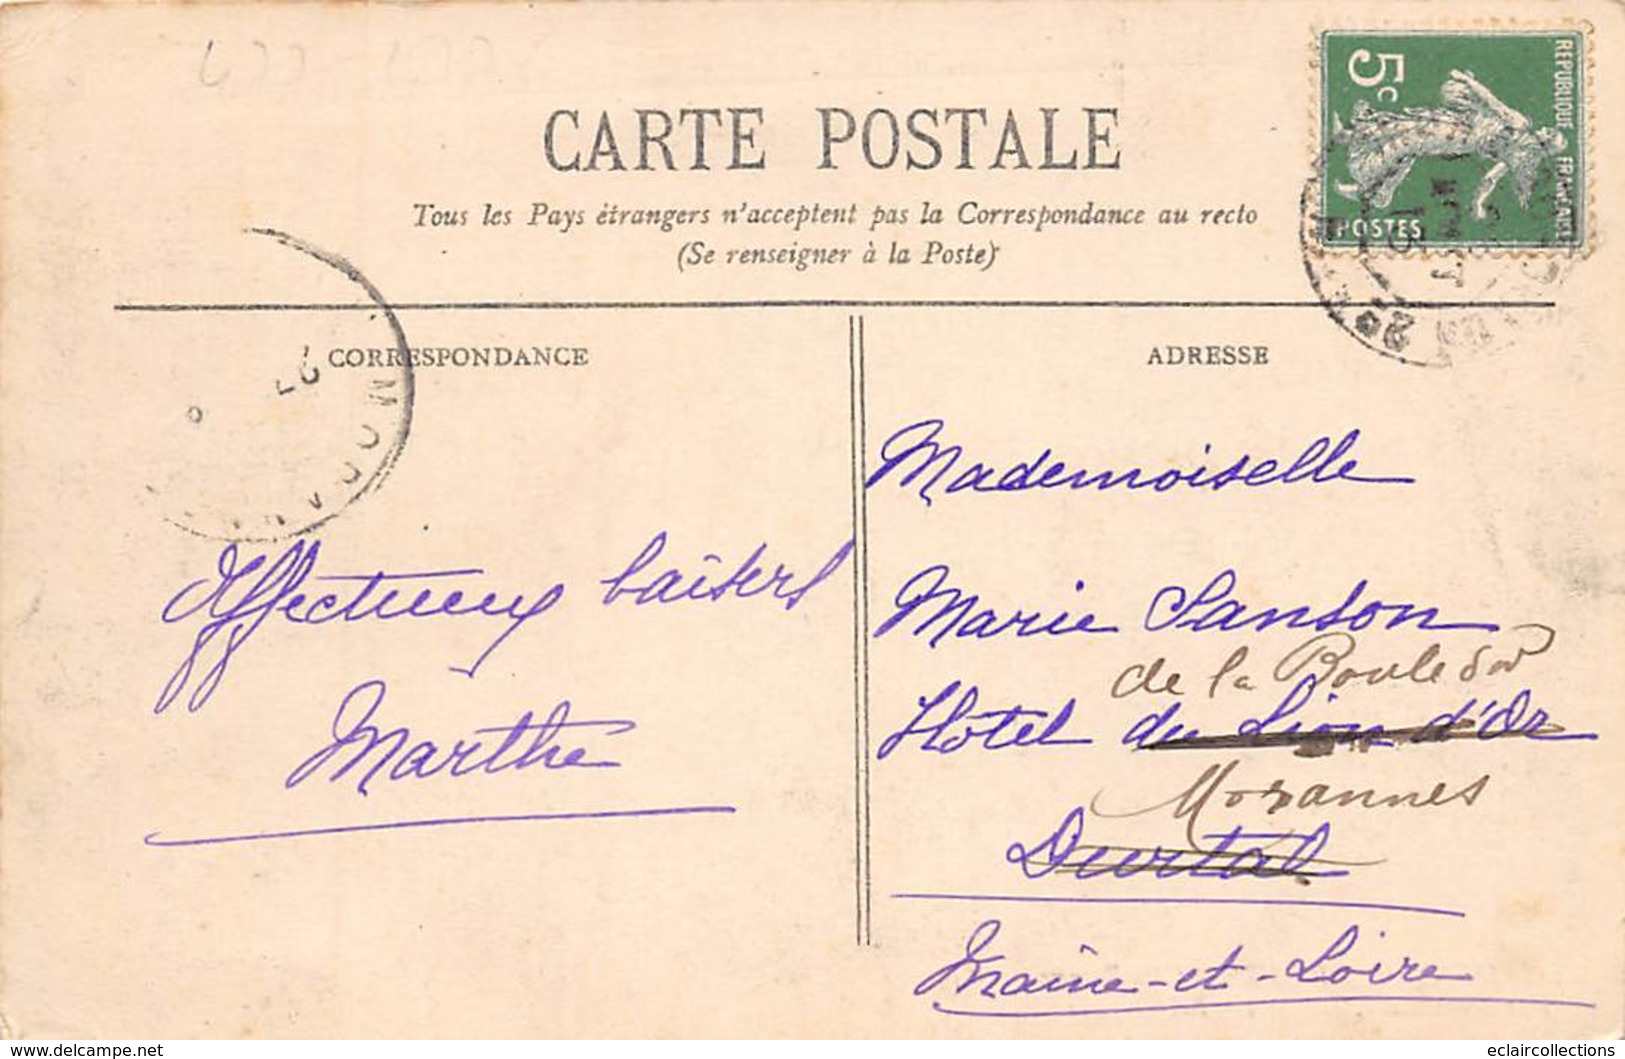 CARTE POSTALE
Tous les Pays étrangers n'acceptent pas la Correspondance au recto
(Se renseigner à la Poste)
5c
REPUBLIQUE FRANÇAISE
POSTES
CORRESPONDANCE
MORANN
Affectueux baisers
Marthe
ADRESSE
Mademoiselle
Marie Sanson
de la Boule d'or
Hotel du Lion d'Or
Morannes
Durtal
Maine-et-Loire
delcampe.net
eclaircollections